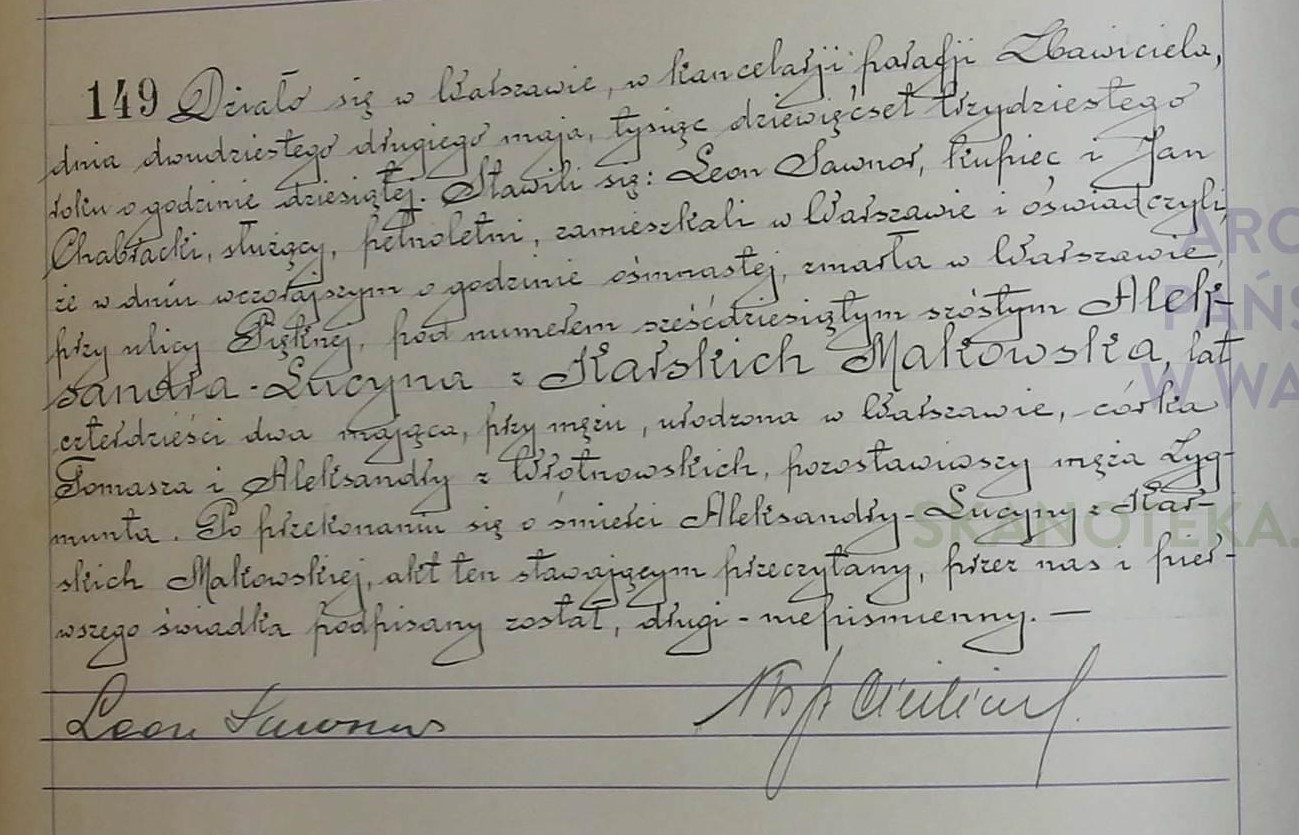 149 Działo się w Warszawie, w kancelarji parafji Zbawiciela,
dnia dwudziestego drugiego maja, tysiąc dziewięćset trzydziestego
roku o godzinie dziesiątej. Stawili się: Leon Sawnor, kupiec i Jan
Chabracki, służący, pełnoletni, zamieszkali w Warszawie i oświadczyli,
że w dniu wczorajszym o godzinie ośmnastej, zmarła w Warszawie,
przy ulicy Pięknej, pod numerem sześćdziesiątym szóstym Alek-
sandra-Lucyna z Karskich Makowska, lat
czterdzieści dwa mająca, przy mężu, urodzona w Warszawie, - córka
Tomasza i Aleksandry z Wrotnowskich, pozostawiwszy męża Zyg-
munta. Po przekonaniu się o śmierci Aleksandry-Lucyny z Kar-
skich Makowskiej, akt ten stawającym przeczytany, przez nas i pier-
wszego świadka podpisany został, drugi - niepiśmienny. —
Leon
ARC
PAŃS
W WA
SKANOTEKA.